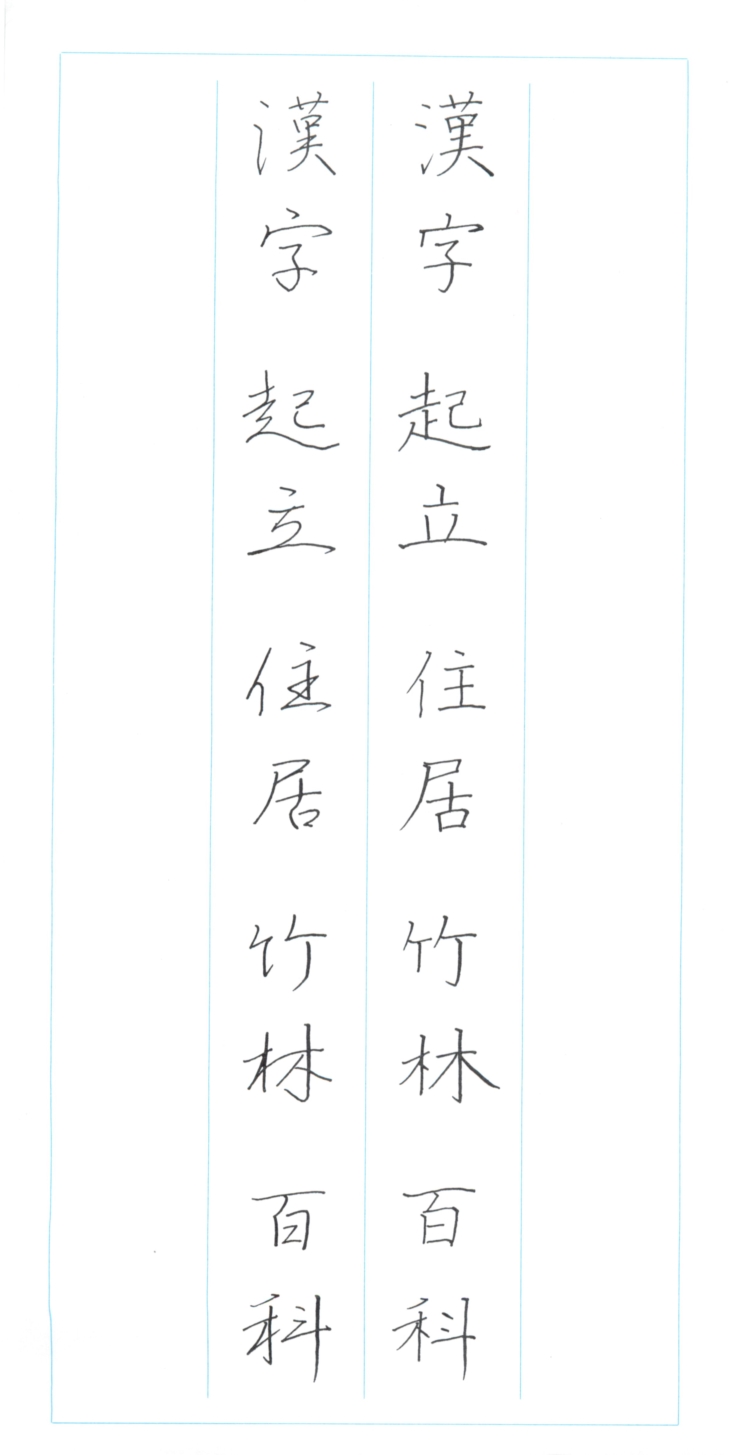 漢字 起立 住居 竹林 百科
漢字 起立 住居 竹林 百科